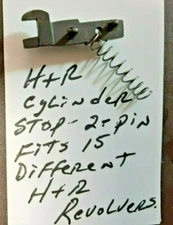 H+R
Cylinder
Stop-2-pin
Fits 15
Different
H+R
Revolvers.